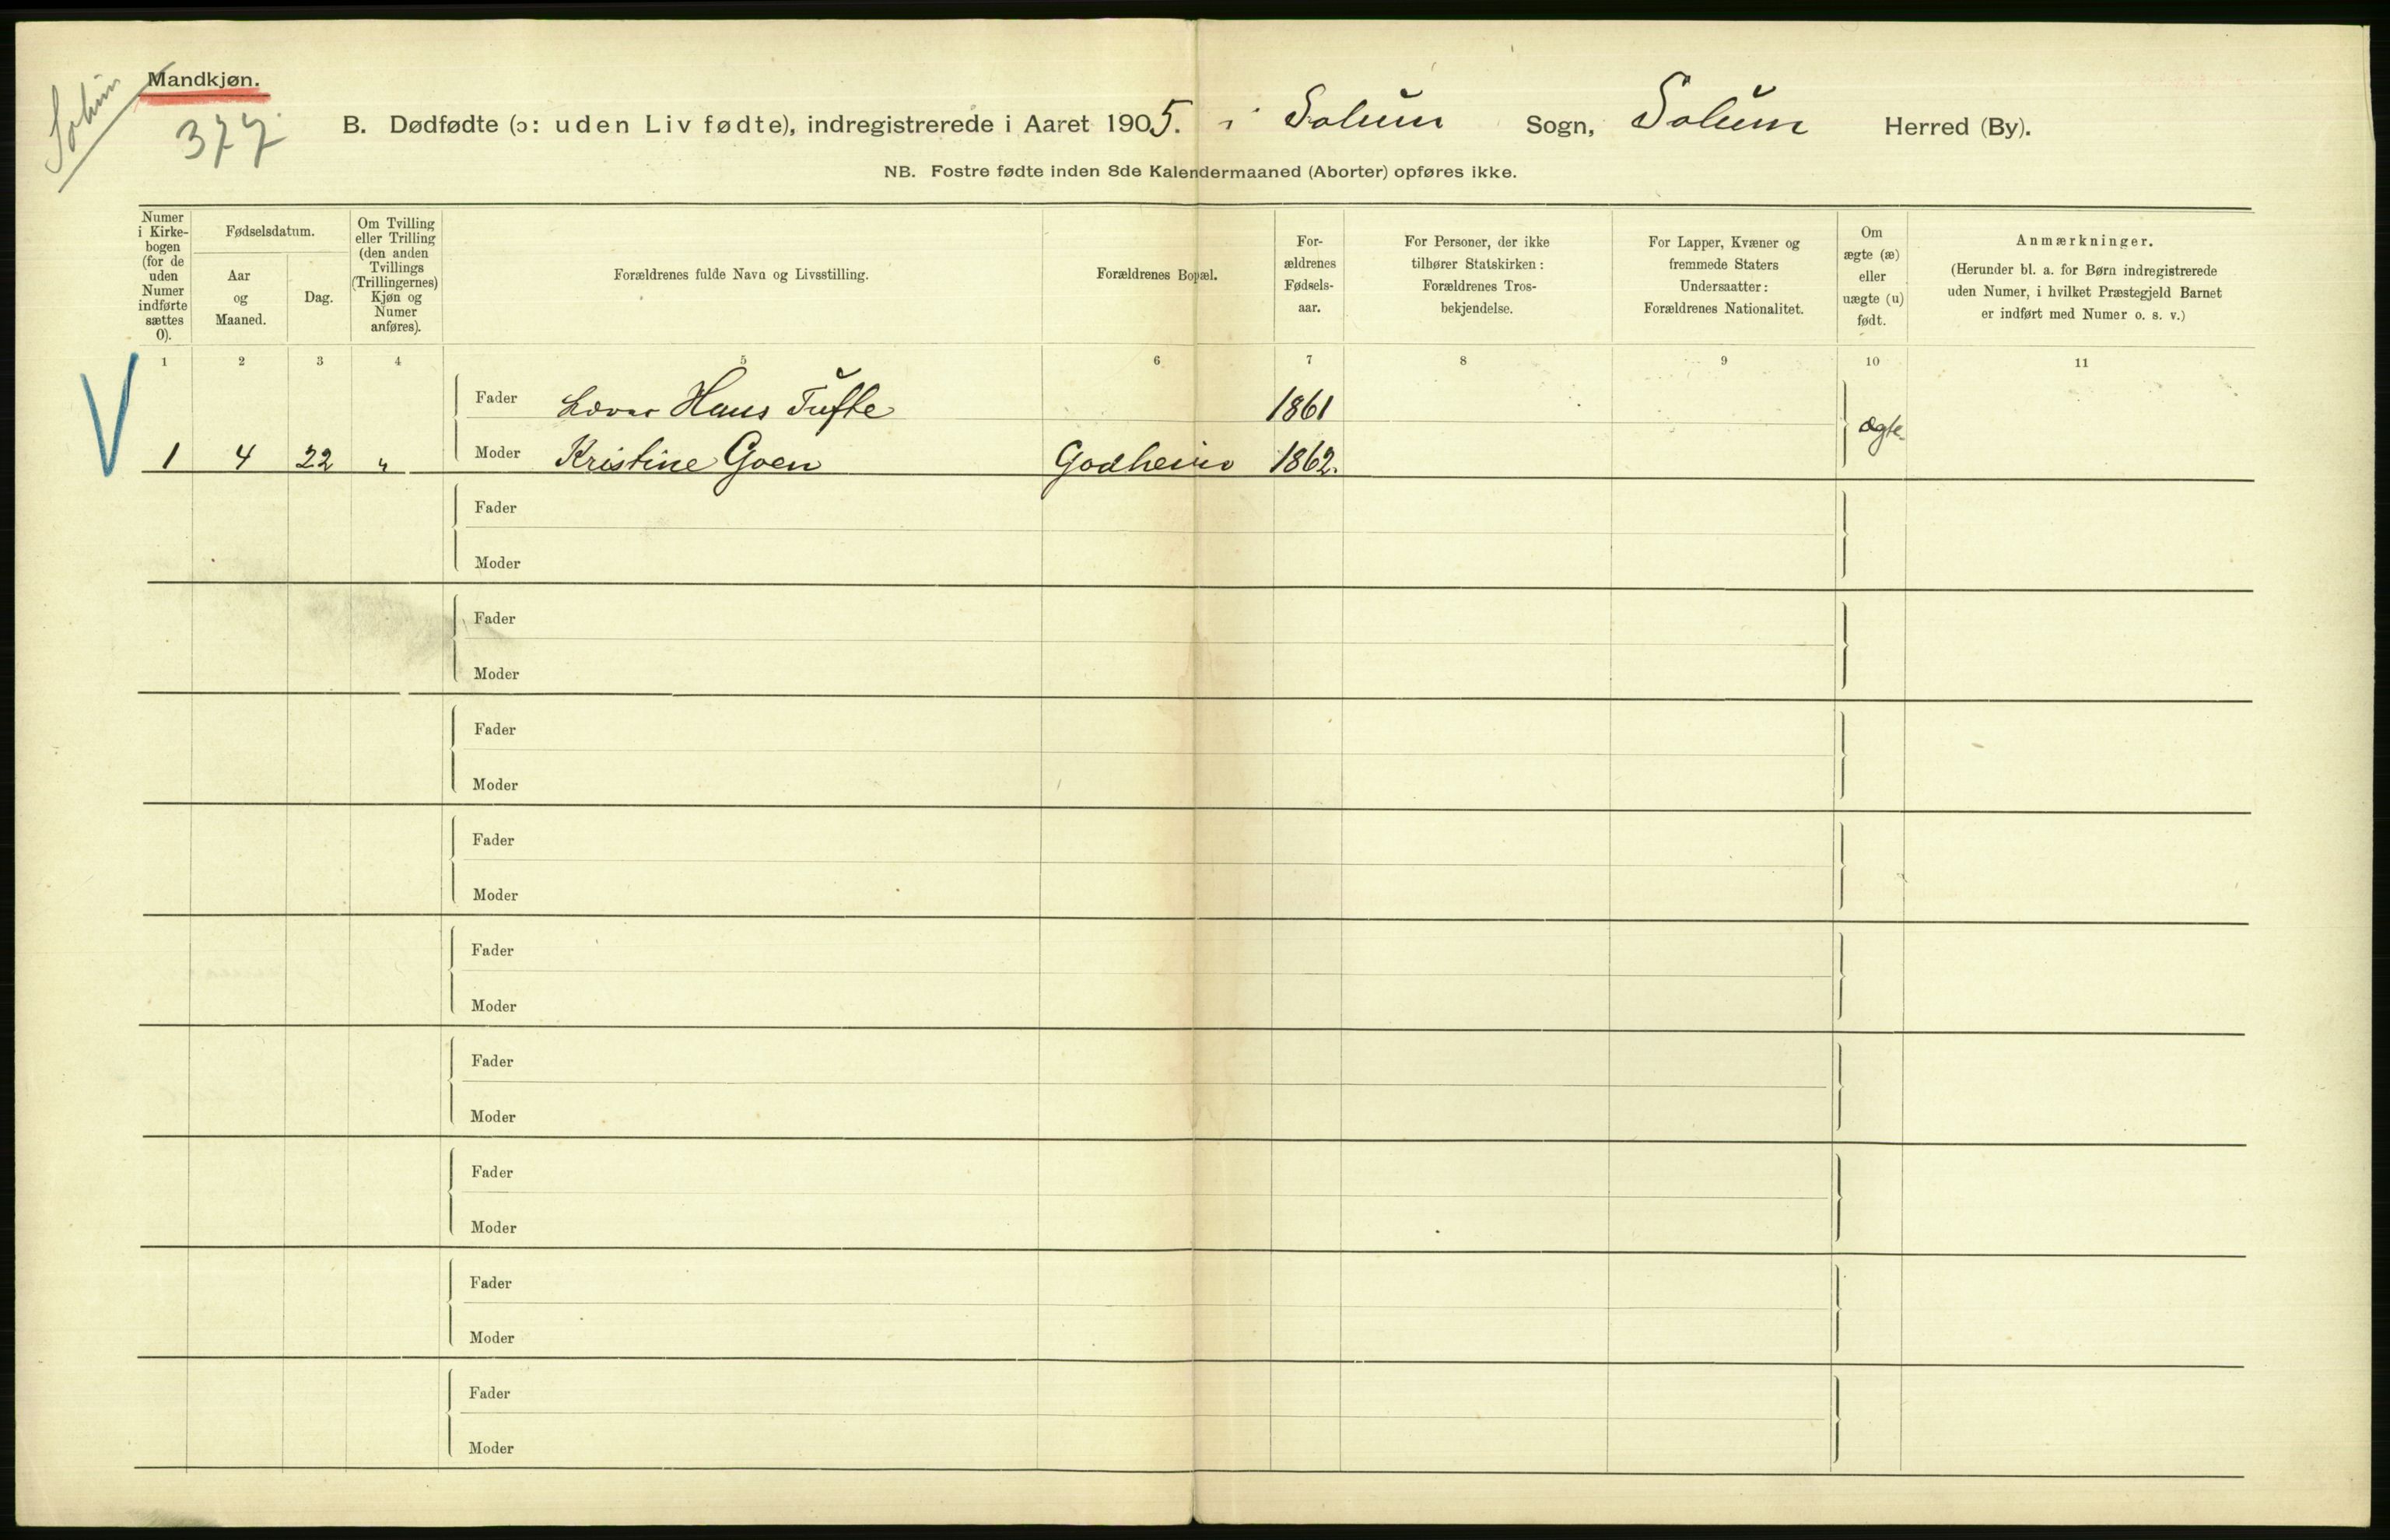 Mandkjøn.
Solum
377.
B. Dødfødte (ɔ: uden Liv fødte), indregistrerede i Aaret 1905. i Solum Sogn, Solum Herred (By).
NB. Fostre fødte inden 8de Kalendermaaned (Aborter) opføres ikke.
Numer
i Kirke-
bogen
(for de
uden
Numer
indførte
sættes
0).
Fødselsdatum.
Aar
og
Maaned.
Dag.
Om Tvilling
eller Trilling
(den anden
Tvillings
(Trillingernes)
Kjøn og
Numer
anføres).
Forældrenes fulde Navn og Livsstilling.
Forældrenes Bopæl.
For-
ældrenes
Fødsels-
aar.
For Personer, der ikke
tilhører Statskirken:
Forældrenes Tros-
bekjendelse.
For Lapper, Kvæner og
fremmede Staters
Undersaatter:
Forældrenes Nationalitet.
Om
ægte (æ)
eller
uægte (u)
født.
Anmærkninger.
(Herunder bl. a. for Børn indregistrerede
uden Numer, i hvilket Præstegjeld Barnet
er indført med Numer o. s. v.)
1 2 3 4 5 6 7 8 9 10 11
Fader Hans Tufte 1861
ægte
1 4 22 " Moder Kristine Goen Godheim 1862.
Fader
Moder
Fader
Moder
Fader
Moder
Fader
Moder
Fader
Moder
Fader
Moder
Fader
Moder
Fader
Moder
Fader
Moder